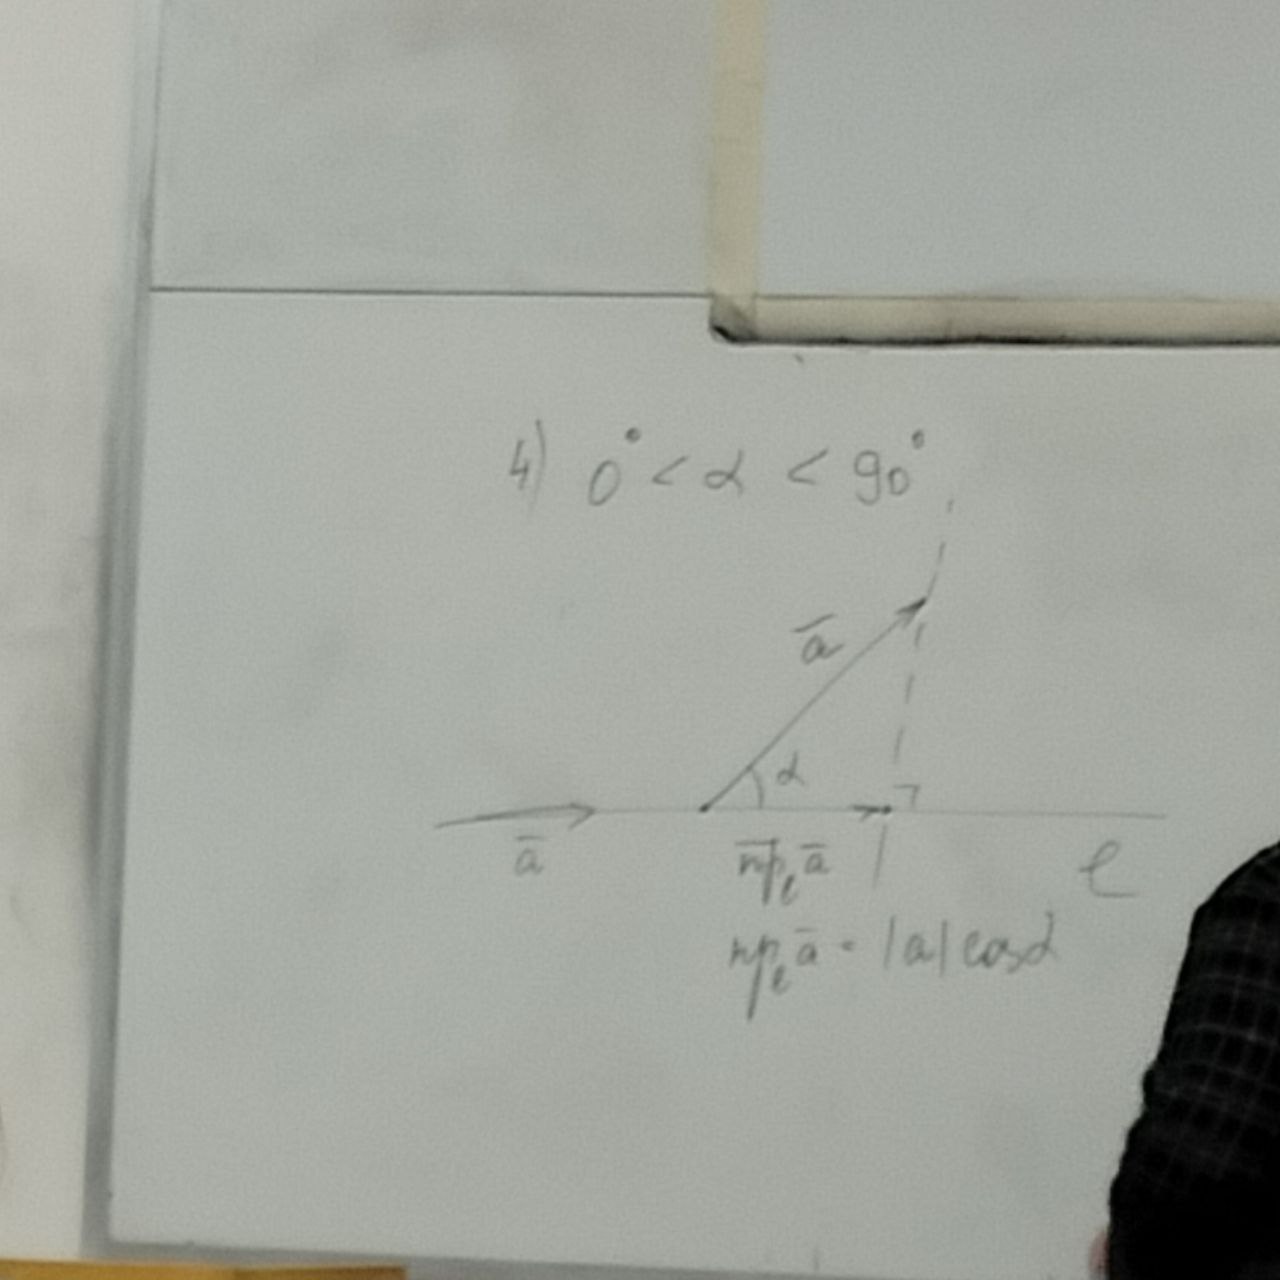 4) 0° < α < 90°
ā
α
ā
пр̅ₗ ā
ℓ
прₗ ā = |a| cos α